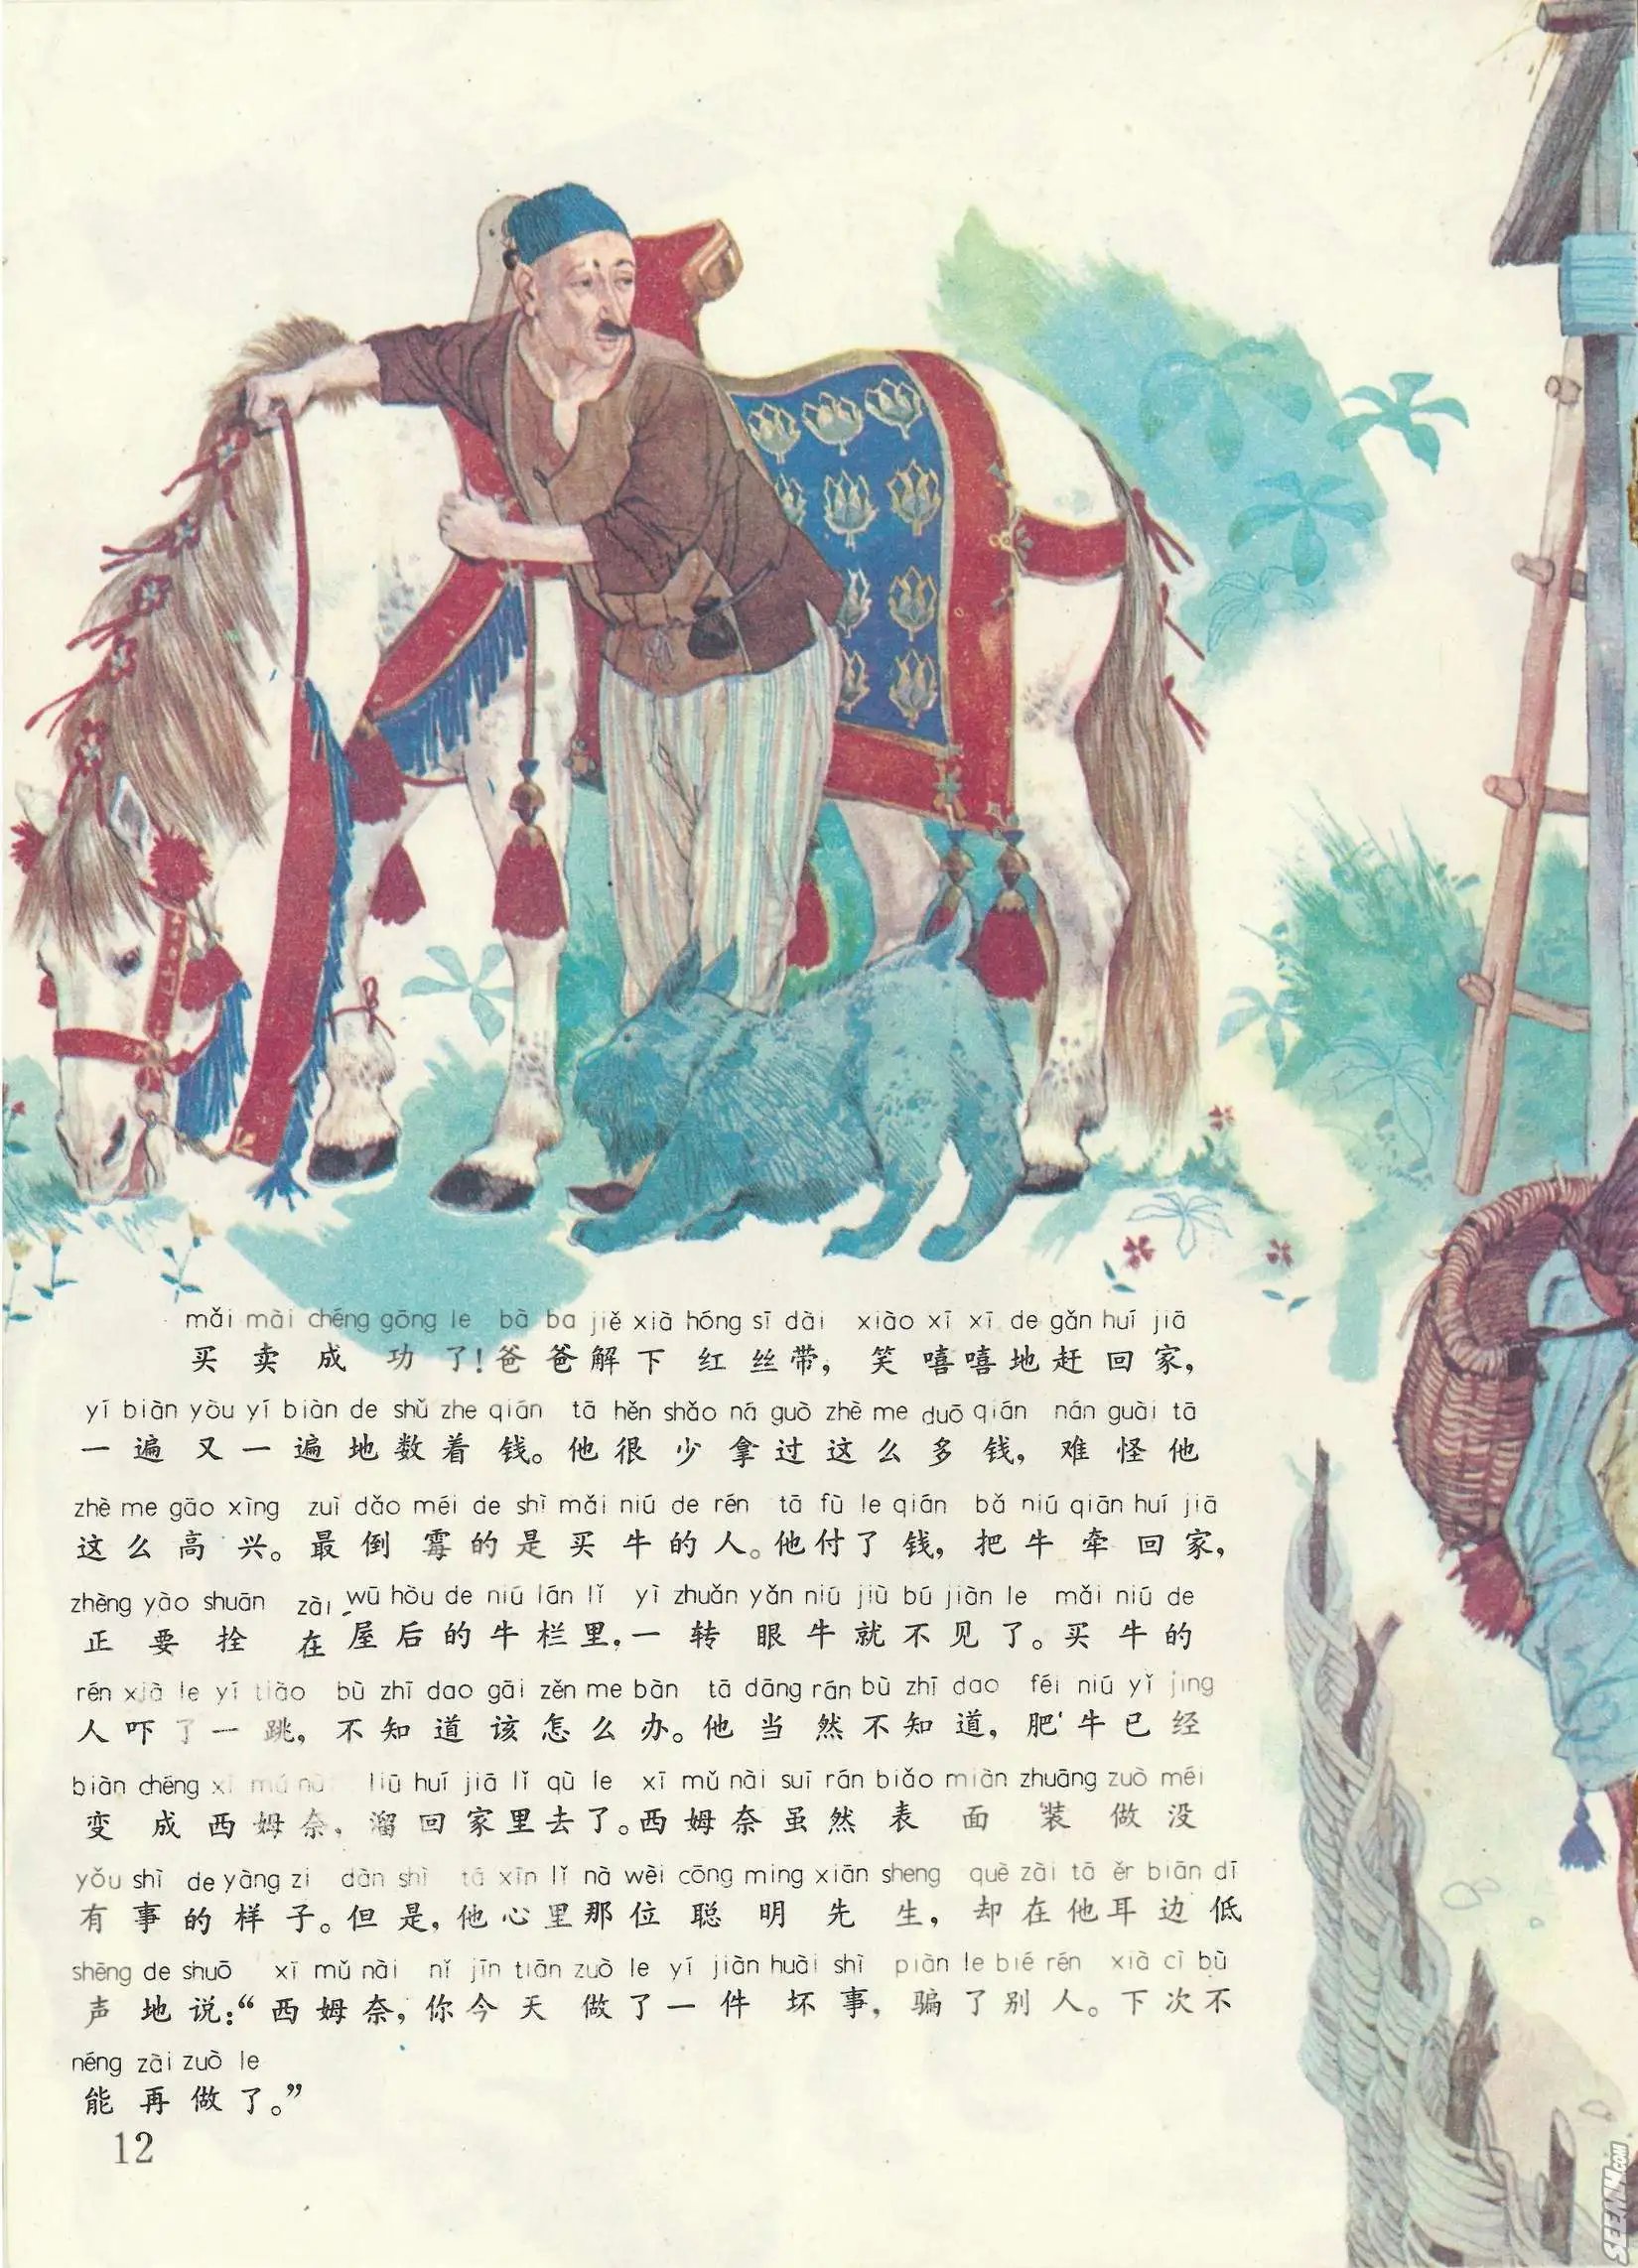 mǎi mài chéng gōng le bà ba jiě xià hóng sī dài xiào xī xī de gǎn huí jiā
买卖成功了！爸爸解下红丝带，笑嘻嘻地赶回家，
yī biàn yòu yī biàn de shǔ zhe qián tā hěn shǎo ná guò zhè me duō qián nán guài tā
一遍又一遍地数着钱。他很少拿过这么多钱，难怪他
zhè me gāo xìng zuì dǎo méi de shì mǎi niú de rén tā fù le qián bǎ niú qiān huí jiā
这么高兴。最倒霉的是买牛的人。他付了钱，把牛牵回家，
zhèng yào shuān zài wū hòu de niú lán lǐ yì zhuǎn yǎn niú jiù bú jiàn le mǎi niú de
正要拴在屋后的牛栏里，一转眼牛就不见了。买牛的
rén xià le yí tiào bù zhī dao gāi zěn me bàn tā dāng rán bù zhī dao féi niú yǐ jing
人吓了一跳，不知道该怎么办。他当然不知道，肥牛已经
biàn chéng xī mǔ nài liū huí jiā lǐ qù le xī mǔ nài suī rán biǎo miàn zhuāng zuò méi
变成西姆奈，溜回家里去了。西姆奈虽然表面装做没
yǒu shì de yàng zi dàn shì tā xīn lǐ nà wèi cōng ming xiān sheng què zài tā ěr biān dī
有事的样子。但是，他心里那位聪明先生，却在他耳边低
shēng de shuō xī mǔ nài nǐ jīn tiān zuò le yí jiàn huài shì piàn le bié rén xià cì bù
声地说：“西姆奈，你今天做了一件坏事，骗了别人。下次不
néng zài zuò le
能再做了。”
12
SEEMH.COM